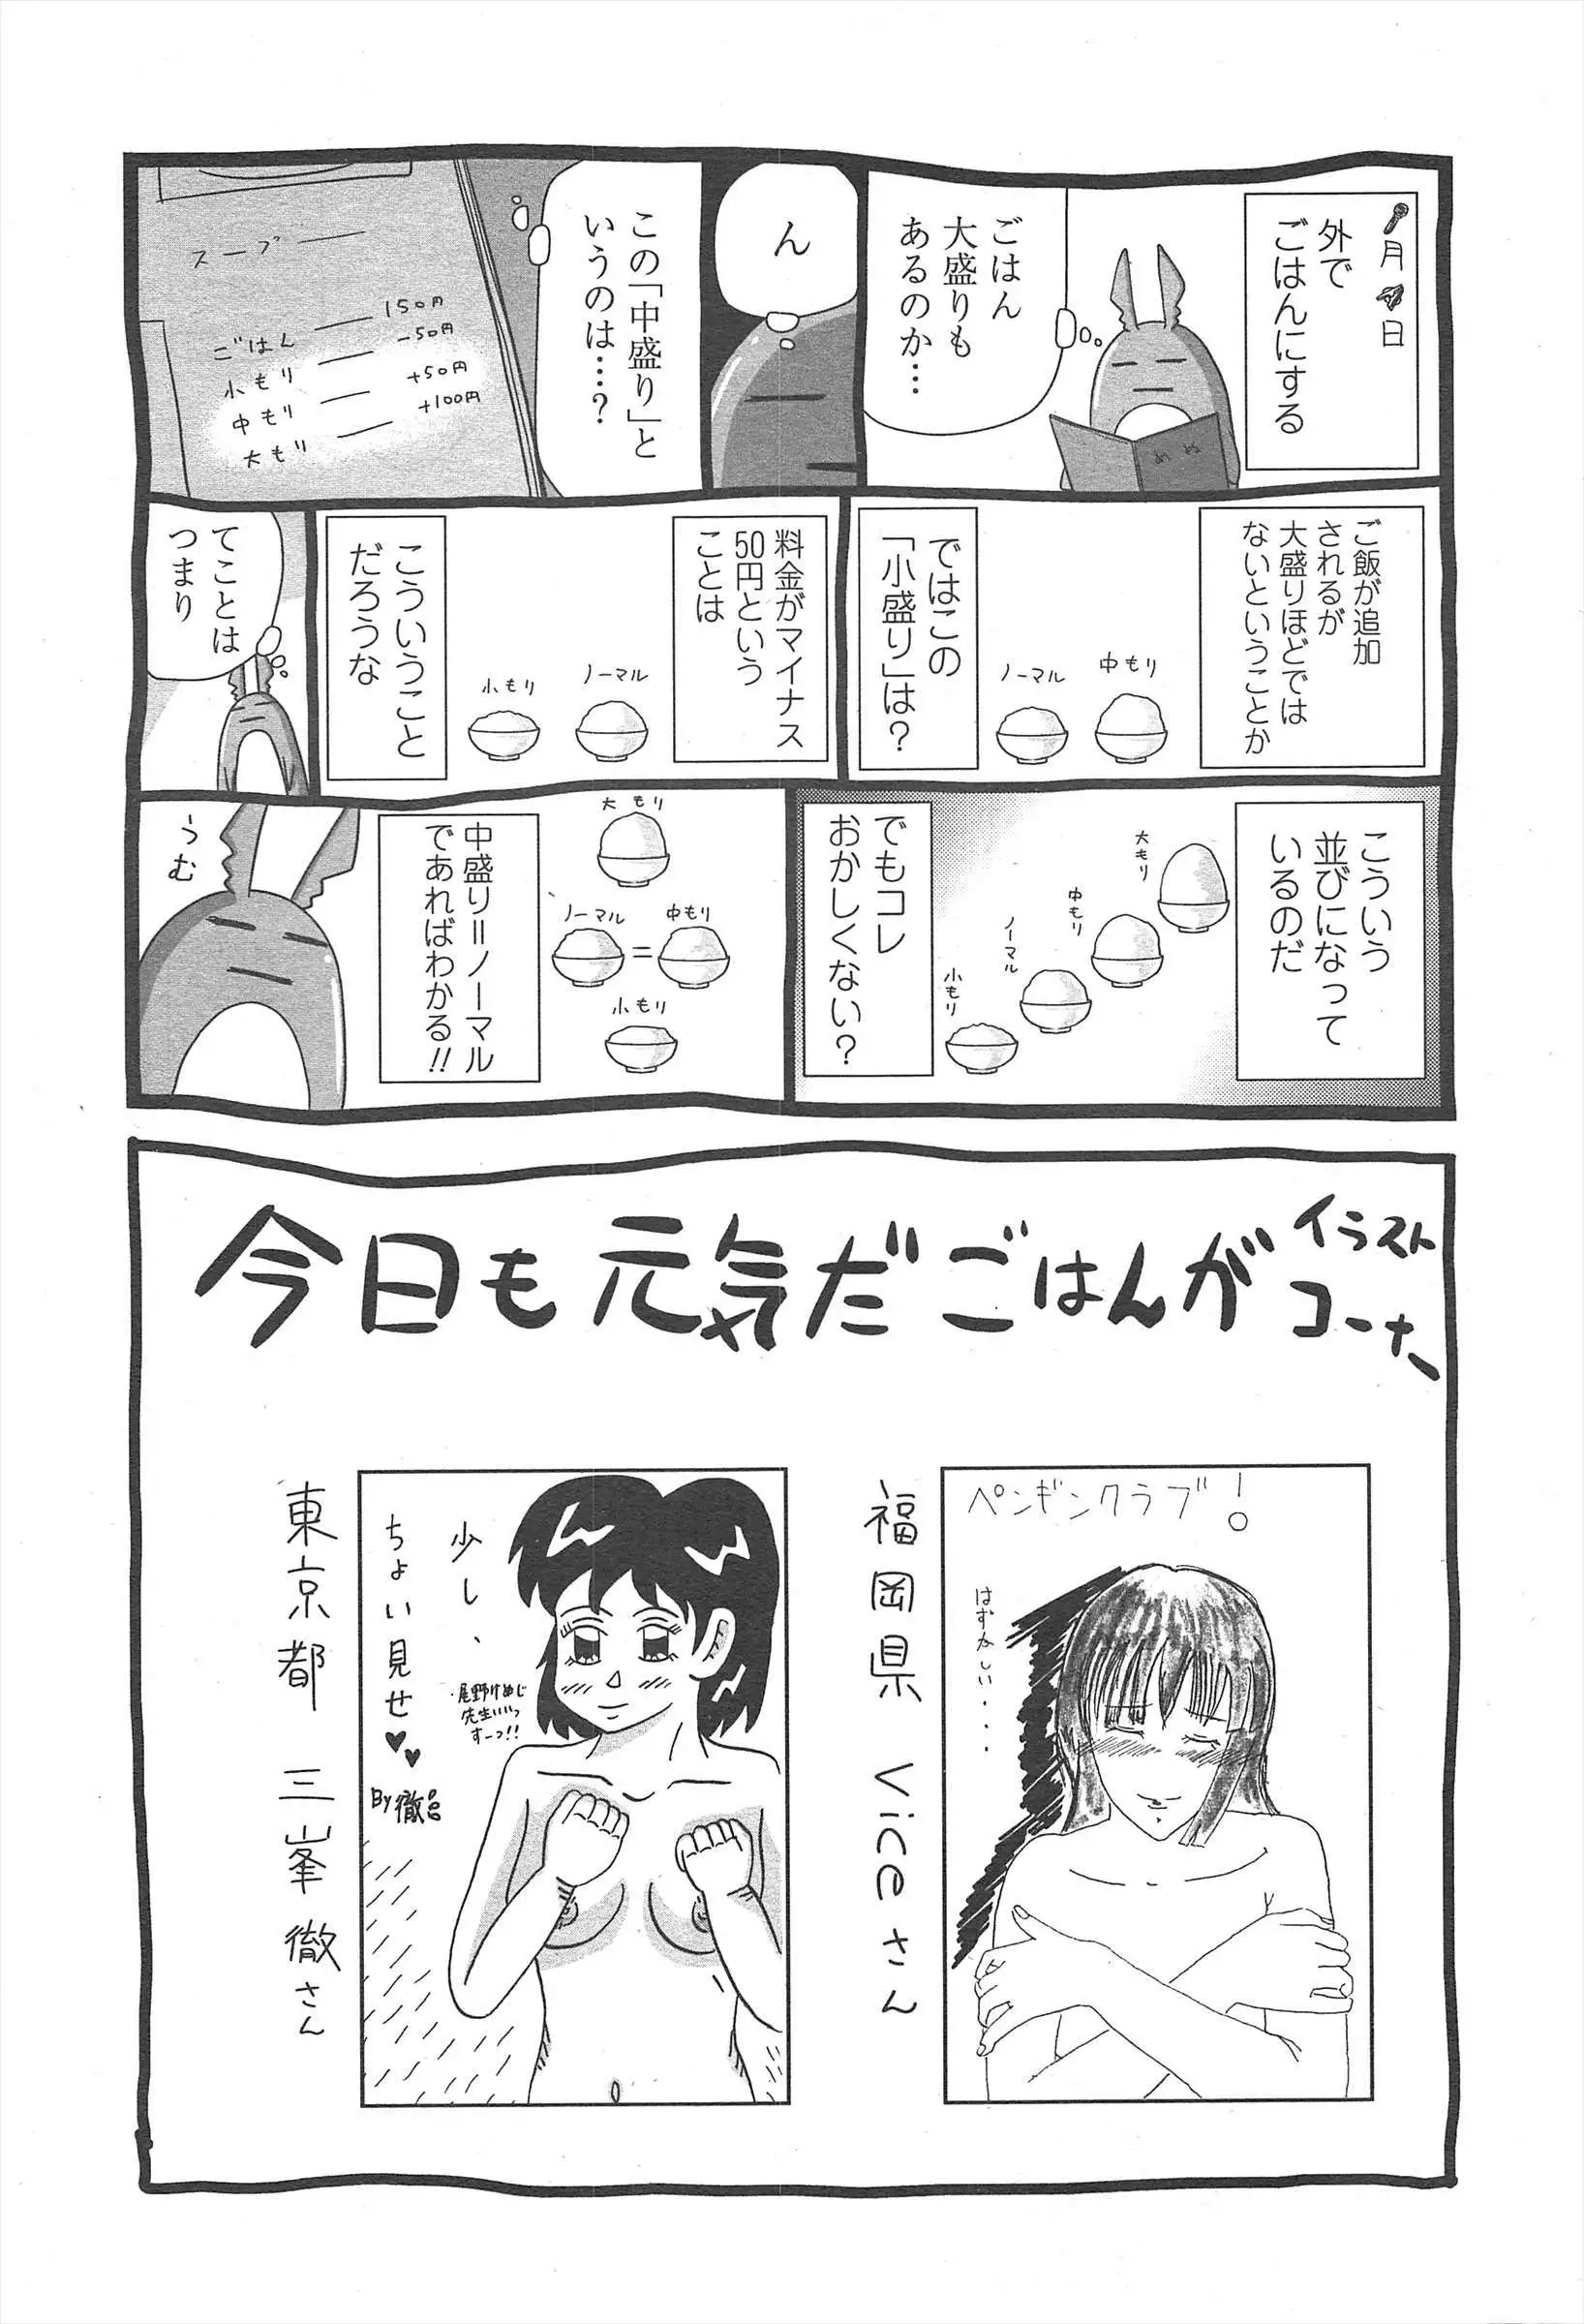 🎤月🚀日
外で
ごはんにする
めぬ
ごはん
大盛りも
あるのか…
ん
この「中盛り」と
いうのは…?
スープ
ごはん 150円
小もり -50円
中もり +50円
大もり +100円
ご飯が追加
されるが
大盛りほどでは
ないということか
中もり
ノーマル
ではこの
「小盛り」は?
料金がマイナス
50円という
ことは
ノーマル
小もり
こういうこと
だろうな
てことは
つまり
こういう
並びになって
いるのだ
大もり
中もり
ノーマル
小もり
でもコレ
おかしくない?
大もり
ノーマル = 中もり
小もり
中盛り=ノーマル
であればわかる!!
うむ
イラスト
コーナー
今日も元気だごはんが
ペンギンクラブ!
はずかしい・・・
福岡県 Viceさん
少し、
ちょい見せ♥♥
尾野けぬじ
先生いいっ
すーっ!!
By 徹
東京都 三峯徹さん